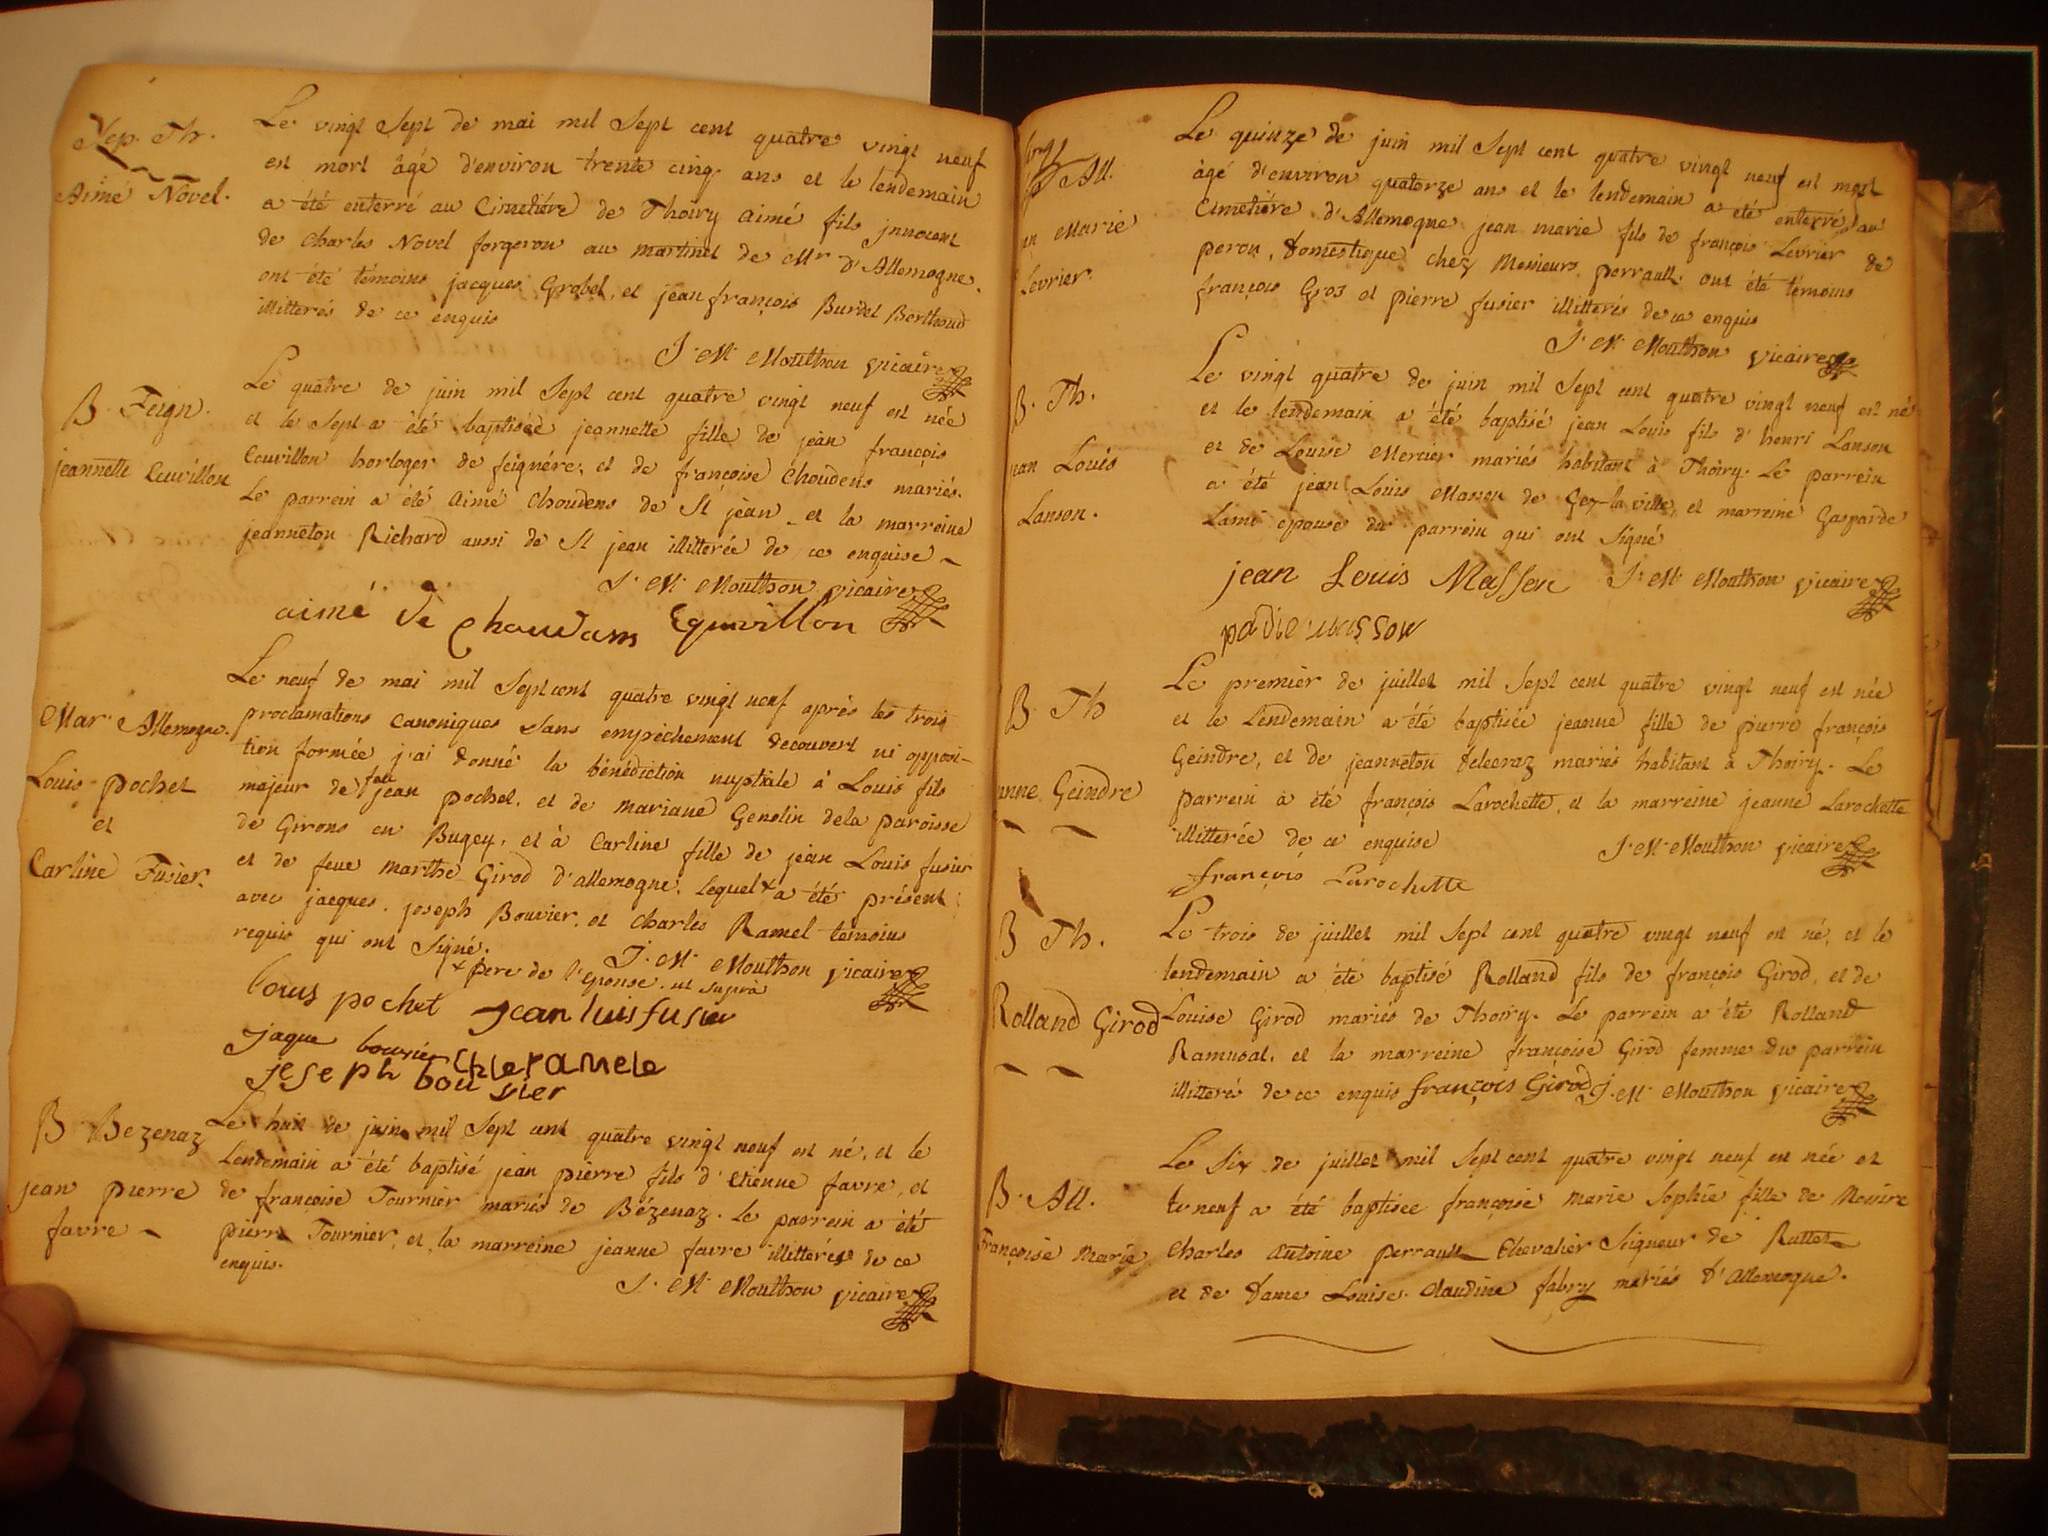 Sep. Th.
Aimé Novel.
Le vingt Sept de mai mil Sept cent quatre vingt neuf
est mort âgé d'environ trente cinq ans et le lendemain
a été enterré au Cimetiére de Thoiry aimé fils innocent
de Charles Novel forgeron au martinet de Mr d'Allemogne.
ont été témoins jacques Grobel, et jean françois Burdet Berthoud
illitterés de ce enquis
J. M. Mouthon vicaire
B. Feign.
jeannette Cuvillon
Le quatre de juin mil Sept cent quatre vingt neuf est née
et le Sept a été baptiséé jeannette fille de jean françois
Cuvillon horloger de feigiére, et de françoise Choudens mariés.
Le parrein a été aimé Choudens de St jean et la marreine
jeanneton Richard aussi de St jean illitterée de ce enquise
J. M. Mouthon vicaire
aimé de Choudans Equvillon
Mar. Allemogne.
Louis pochet
et
Carline Fusier.
Le neuf de mai mil Sept cent quatre vingt neuf aprés les trois
proclamations canoniques sans empéchement decouvert ni opposi-
tion formée j'ai donné la bénédiction nuptiale à Louis fils
majeur de feu jean pochet, et de mariane Genolin dela paroisse
de Girons en Bugey, et à Carline fille de jean Louis fusier
et de feue marthe Girod d'allemogne. Lequel + a été présent
avec jacques, joseph Bouvier, et Charles Ramel temoins
requis qui ont Signé.
J. M. Mouthon vicaire
+ pere de l'Epouse. ut supra
louis pochet jean luis fusier
jaque bouvier chle ramele
jeseph bouvier
B Bezenaz
jean pierre
favre
Le huit de juin mil Sept cent quatre vingt neuf est né, et le
Lendemain a été baptisé jean pierre fils d'Etienne favre, et
de françoise Tournier mariés de Bézenaz. Le parrein a été
pierre Tournier, et la marreine jeanne favre illitterés de ce
enquis.
J. M. Mouthon vicaire
All.
Marie
Levrier.
Le quinze de juin mil Sept cent quatre vingt neuf est mort
âgé d'environ quatorze ans et le lendemain a été enterré au
Cimetiére d'Allemogne jean marie fils de françois Levrier de
peron, domestique chez Messieurs perrault. ont été témoins
françois Gros et pierre fusier illitterés de ce enquis
J. M. Mouthon vicaire
B. Th.
Louis
Lanson.
Le vingt quatre de juin mil Sept cent quatre vingt neuf est né
et le lendemain a été baptisé jean Louis fils d'henri Lanson
et de Louise Mercier mariés habitant à Thoiry. Le parrein
a été jean Louis Masson de Gex la ville, et marreine Gasparde
Lami epouse du parrein qui ont Signé
jean Louis Masson J. M. Mouthon vicaire
B Th
Geindre
Le premier de juillet mil Sept cent quatre vingt neuf est née
et le Lendemain a été baptisée jeanne fille de pierre françois
Geindre, et de jeanneton delecraz mariés habitant à Thoiry. Le
parrein a été françois Larochette, et la marreine jeanne Larochette
illitterée de ce enquise
J. M. Mouthon vicaire
françois Larochette
B Th.
Rolland Girod
Le trois de juillet mil Sept cent quatre vingt neuf est né, et le
lendemain a été baptisé Rolland fils de françois Girod, et de
Louise Girod mariés de Thoiry. Le parrein a été Rolland
Ramusat, et la marreine françoise Girod femme du parrein
illitterés de ce enquis françois Girod J. M. Mouthon vicaire
B. All.
françoise Marie
Le Six de juillet mil Sept cent quatre vingt neuf est née et
le neuf a été baptisee françoise marie Sophie fille de Messire
Charles antoine perrault Chevalier Seigneur de Ruttet
et de dame Louise Claudine fabry mariés d'allemogne.